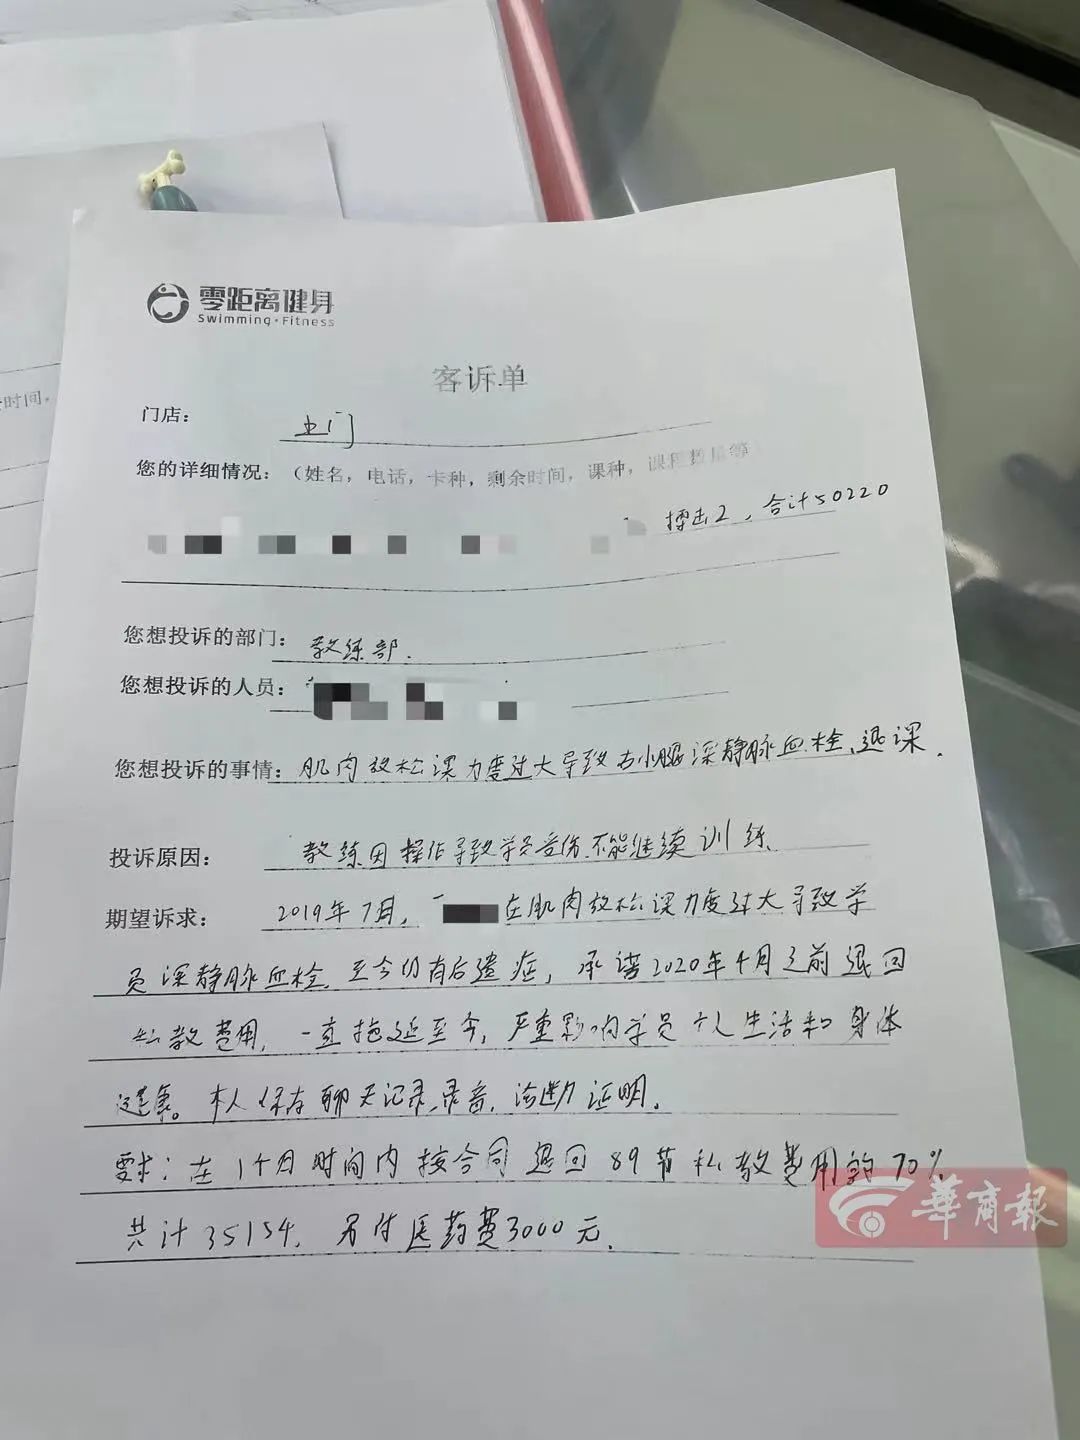 零距离健身
Swimming·Fitness
客诉单
时间，
门店：
门
您的详细情况：（姓名，电话，卡种，剩余时间，课种，课程数量等
搏击2，合计50220
您想投诉的部门：教练部.
您想投诉的人员：
您想投诉的事情：肌肉放松课力度过大导致右小腿深静脉血栓、退课.
投诉原因：教练因操作导致学员受伤不能继续训练
期望诉求：2019年7月，在肌肉放松课力度过大导致学
员深静脉血栓，至今仍有后遗症，承诺2020年4月之前退回
私教费用，一直拖延至今，严重影响学员个人生活和身体
健康。本人保存聊天记录、录音，诊断证明。
要求：在1个月时间内按合同退回89节私教费用的70%
共计35154，另付医药费3000元.
華商報